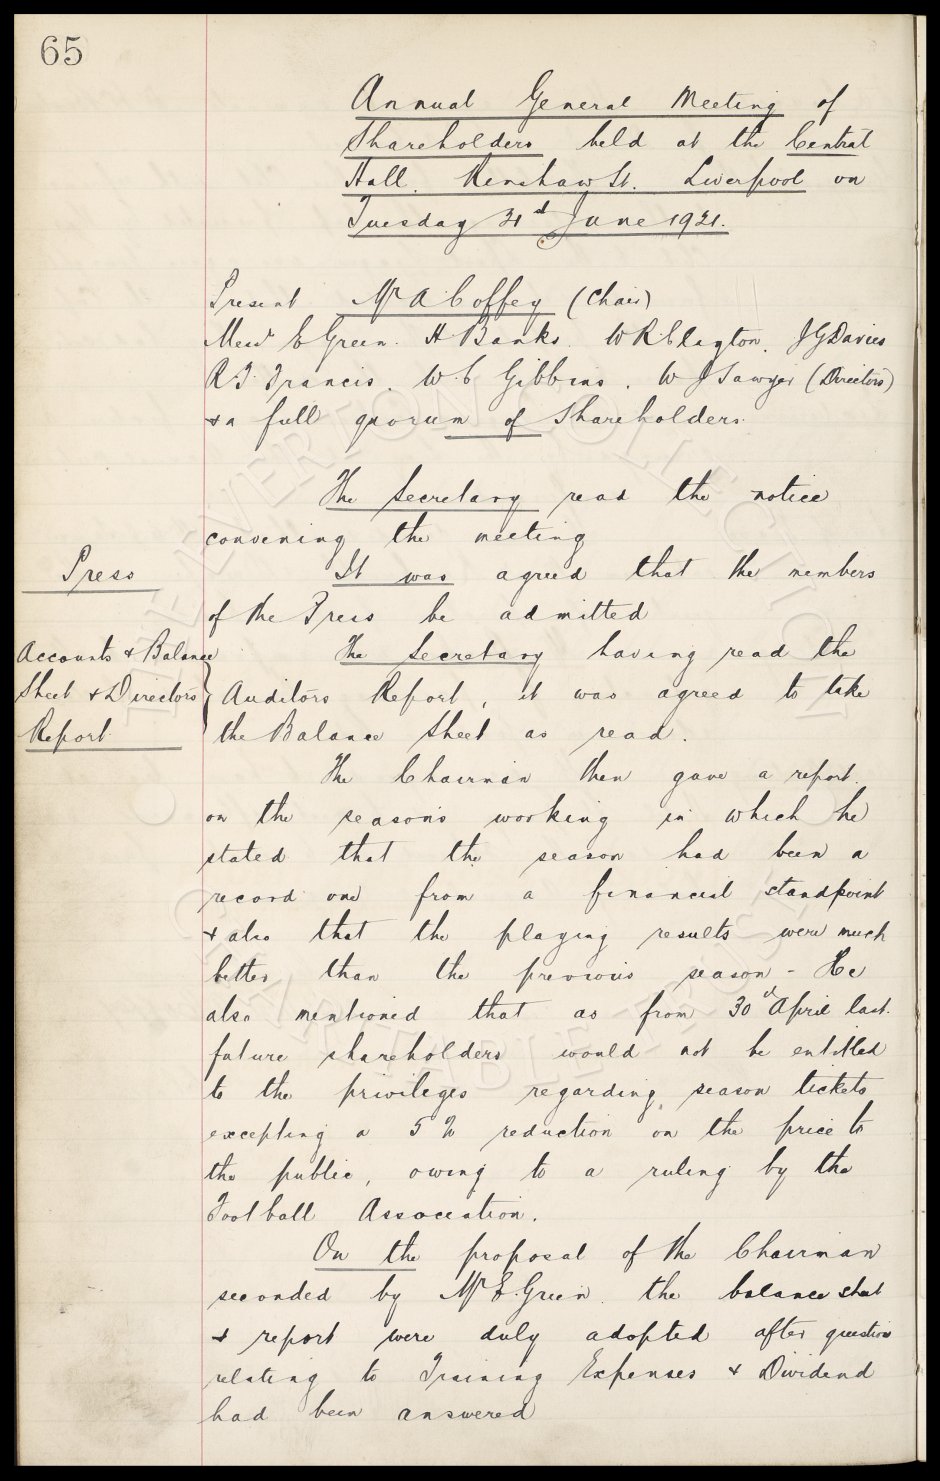 65
Annual General Meeting of
Shareholders held at the Central
Hall. Renshaw St. Liverpool on
Tuesday 21st June 1921.
Present Mr A Coffey (Chair)
Messrs E Green. H Banks. W R Clayton. J G Davies
R T Francis. W. C Gibbins. W J Sawyer (Directors)
& a full quorum of Shareholders
The Secretary read the notice
convening the meeting
Press
It was agreed that the members
of the Press be admitted
Accounts & Balance
Sheet & Directors
Report
The Secretary having read the
Auditors Report, it was agreed to take
the Balance Sheet as read.
The Chairman then gave a report
on the seasons working in which he
stated that the season had been a
record one from a financial standpoint
& also that the playing results were much
better than the previous season - He
also mentioned that as from 30th April last
future shareholders would not be entitled
to the privileges regarding season tickets
excepting a 5% reduction on the price to
the public, owing to a ruling by the
Football Association.
On the proposal of the Chairman
seconded by Mr E. Green. the balance sheet
& report were duly adopted after question
relating to Training Expenses & Dividend
had been answered
THE EVERTON COLLECTION
CHARITABLE TRUST